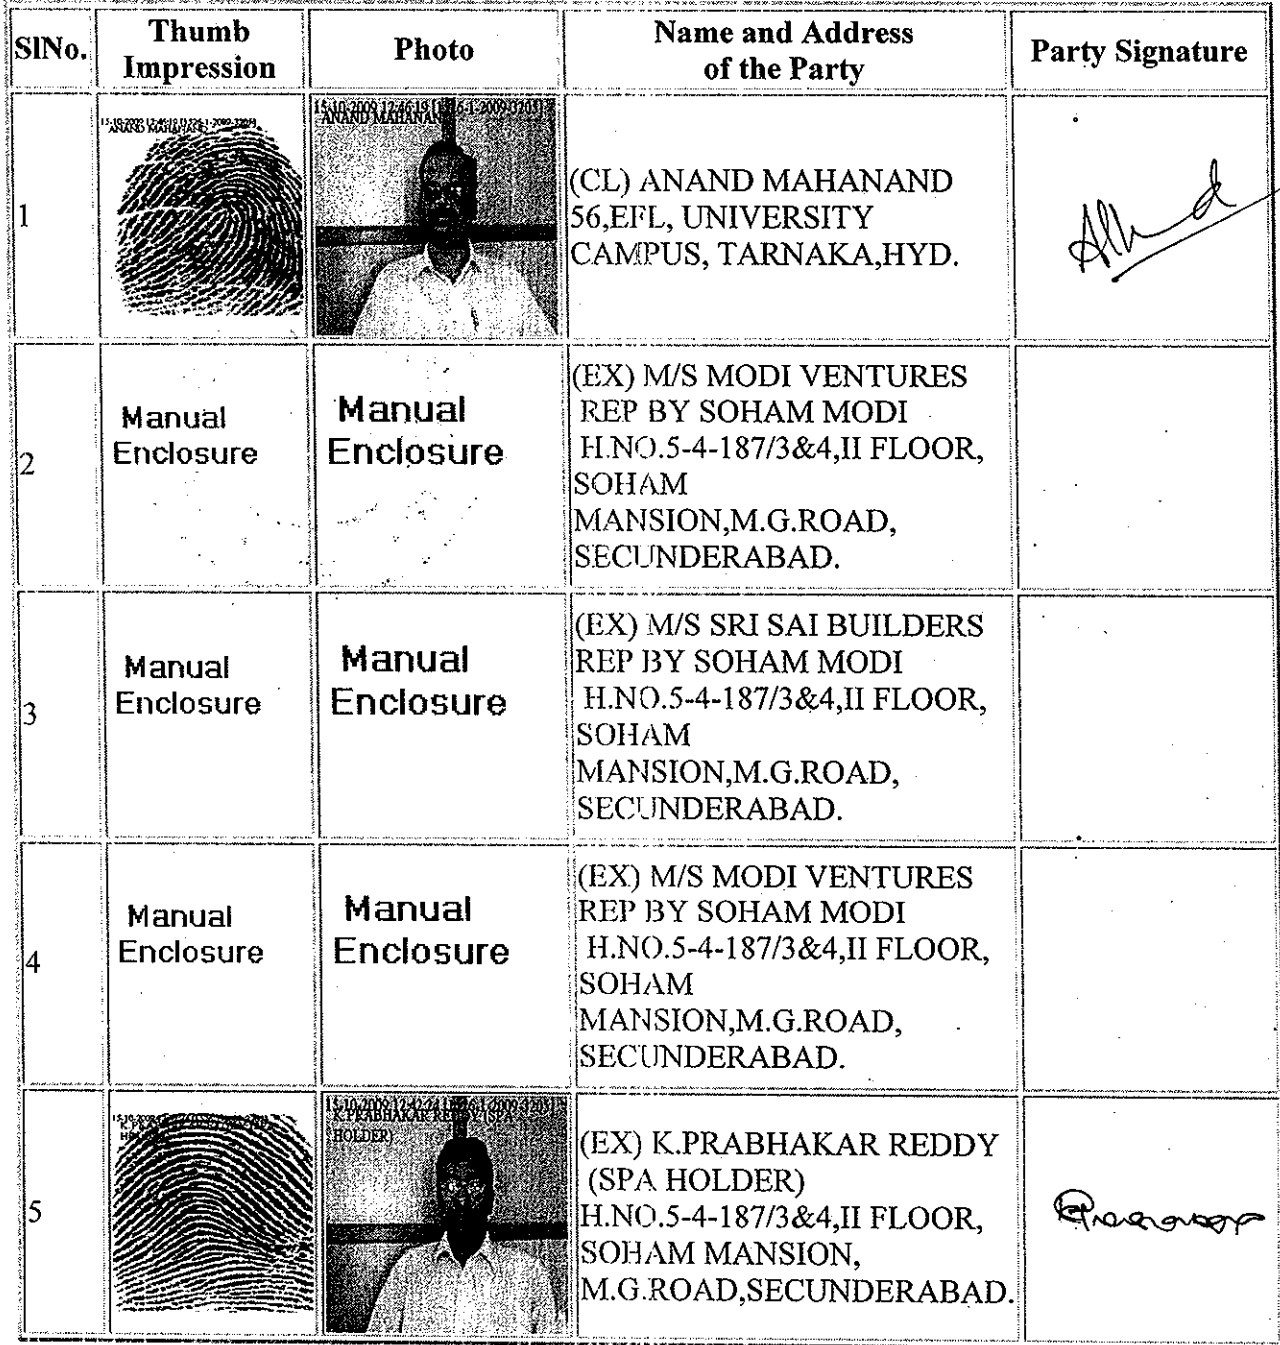 SlNo.
Thumb
Impression
Photo
Name and Address
of the Party
Party Signature
1
ANAND MAHANAND
ANAND MAHANAN
(CL) ANAND MAHANAND
56,EFL, UNIVERSITY
CAMPUS, TARNAKA,HYD.
2
Manual
Enclosure
Manual
Enclosure
(EX) M/S MODI VENTURES
REP BY SOHAM MODI
H.NO.5-4-187/3&4,II FLOOR,
SOHAM
MANSION,M.G.ROAD,
SECUNDERABAD.
3
Manual
Enclosure
Manual
Enclosure
(EX) M/S SRI SAI BUILDERS
REP BY SOHAM MODI
H.NO.5-4-187/3&4,II FLOOR,
SOHAM
MANSION,M.G.ROAD,
SECUNDERABAD.
4
Manual
Enclosure
Manual
Enclosure
(EX) M/S MODI VENTURES
REP BY SOHAM MODI
H.NO.5-4-187/3&4,II FLOOR,
SOHAM
MANSION,M.G.ROAD,
SECUNDERABAD.
5
K.PRABHAKAR REDDY (SPA
HOLDER)
(EX) K.PRABHAKAR REDDY
(SPA HOLDER)
H.NO.5-4-187/3&4,II FLOOR,
SOHAM MANSION,
M.G.ROAD,SECUNDERABAD.